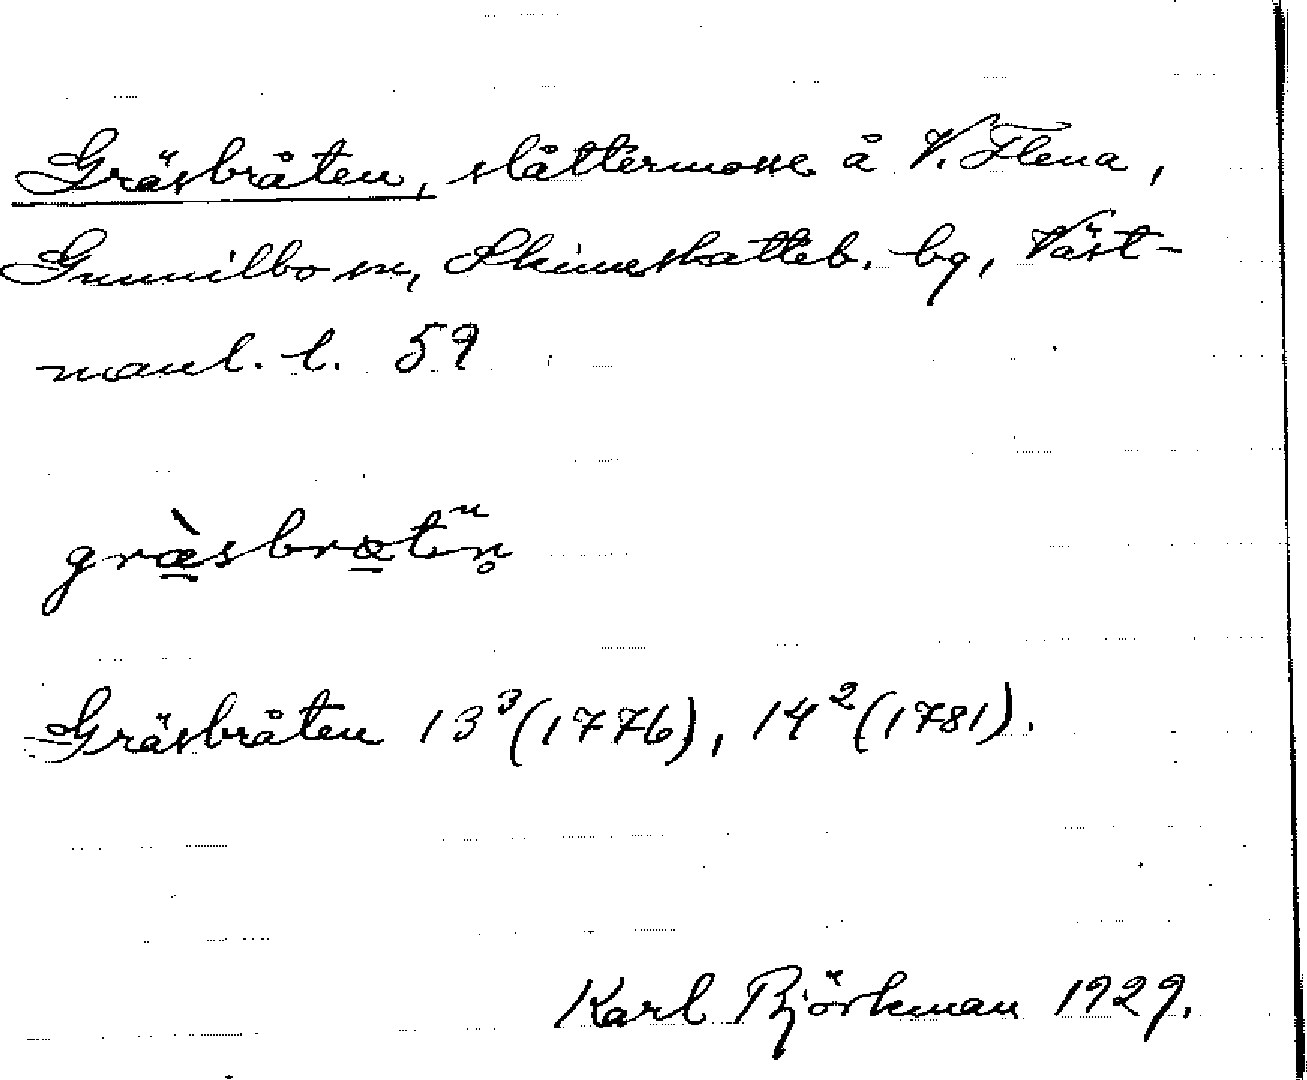 Gräsbråten, slåttermosse å V. Flena,
Gunnilbo sn, Skinnskatteb. bg, Väst-
manl. l. 59
græ̀sbrætn̥
Gräsbråten 13³(1776), 14²(1781).
Karl Björkman 1929.